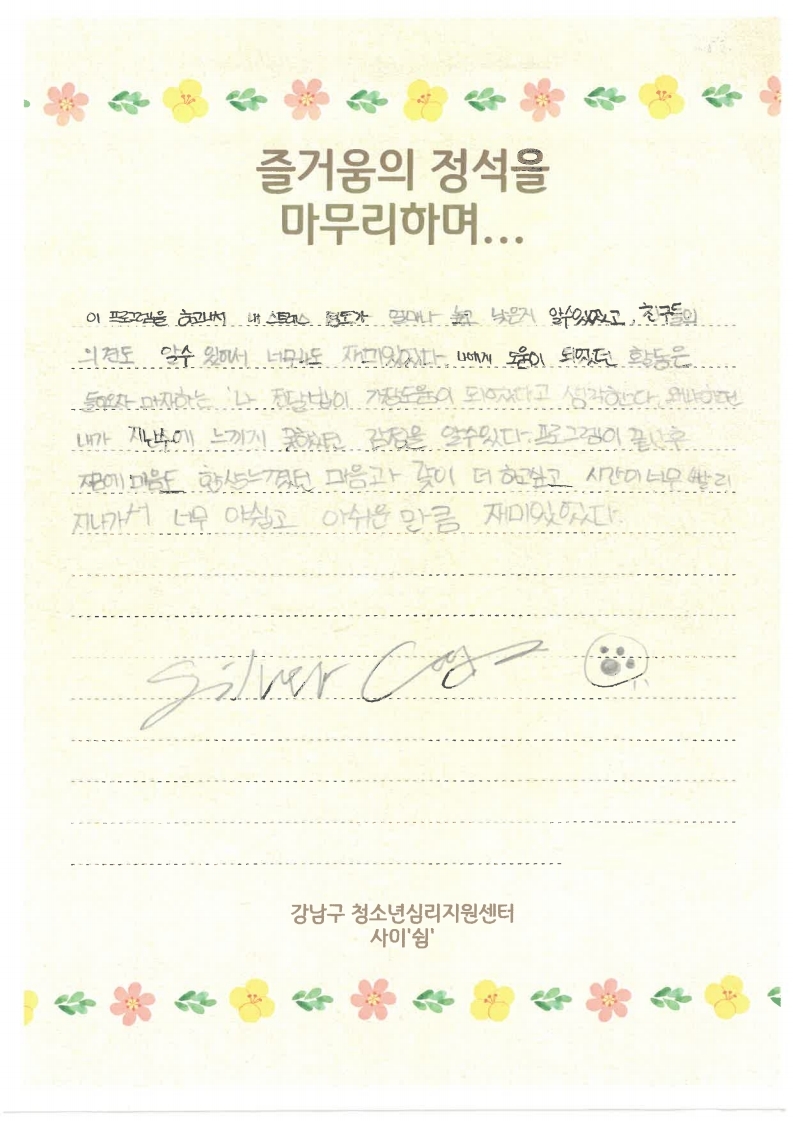 즐거움의 정석을
마무리하며...
이 프로그램을 하고나서 내 스트레스 정도가 얼마나 높고 낮은지 알수있었고, 친구들의
의견도 알수 있어서 너무나도 재미있었다. 나에게 도움이 되었던 활동은
마자하는 '나 전달법이 가장도움이 되었다고 생각한다. 왜냐하면
내가 지난주에 느끼게 못하였던 감정을 알수있다. 프로그램이 끝난후
마음도 항상느꼈던 마음과 같이 더 하고싶고 시간이 너무 빨리
지나가서 너무 아쉽고 아쉬운 만큼 재미있었다.
Silver
강남구 청소년심리지원센터
사이'쉼'